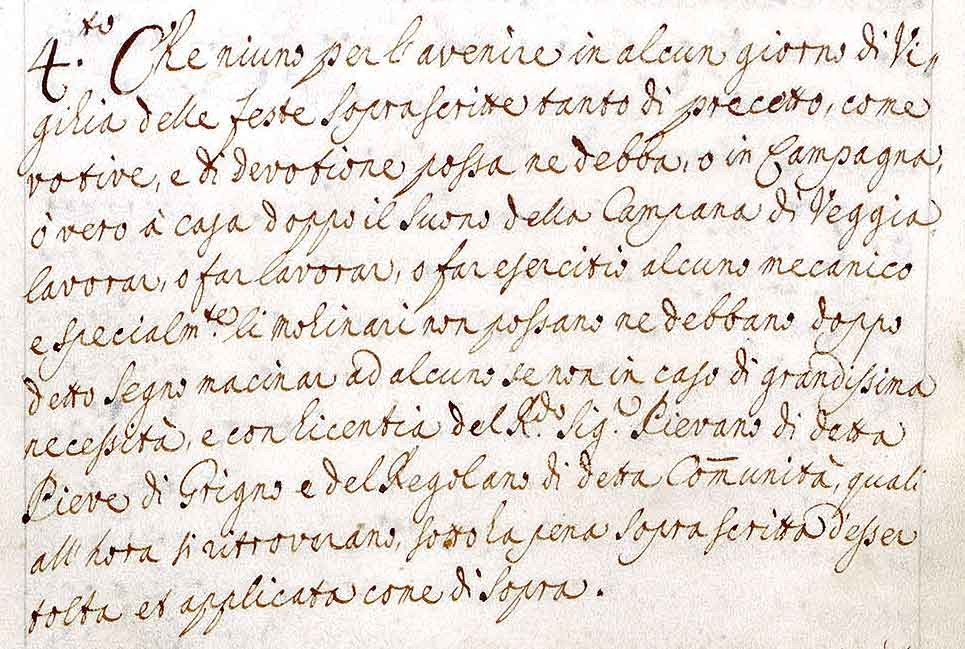 4.to Che niuno per l'avenire in alcun giorno di Vi„
gilia delle feste sopra scritte tanto di precetto, come
votive, e di devotione possa ne debba, o in Campagna,
ò vero à casa doppo il suono della Campana di Veggia
lavorar, o far lavorar, o far esercitio alcuno mecanico
e specialm.te li molinari non possano ne debbano doppo
detto segno macinar ad alcuno se non in caso di grandissima
necessità, e con licentia del R.do Sig.r Pievano di detta
Pieve di Grigno e del Regolano di detta Com̅unità, quali
all'hora si ritroverano, sotto la pena sopra scritta d'esser
tolta et applicata come di sopra.